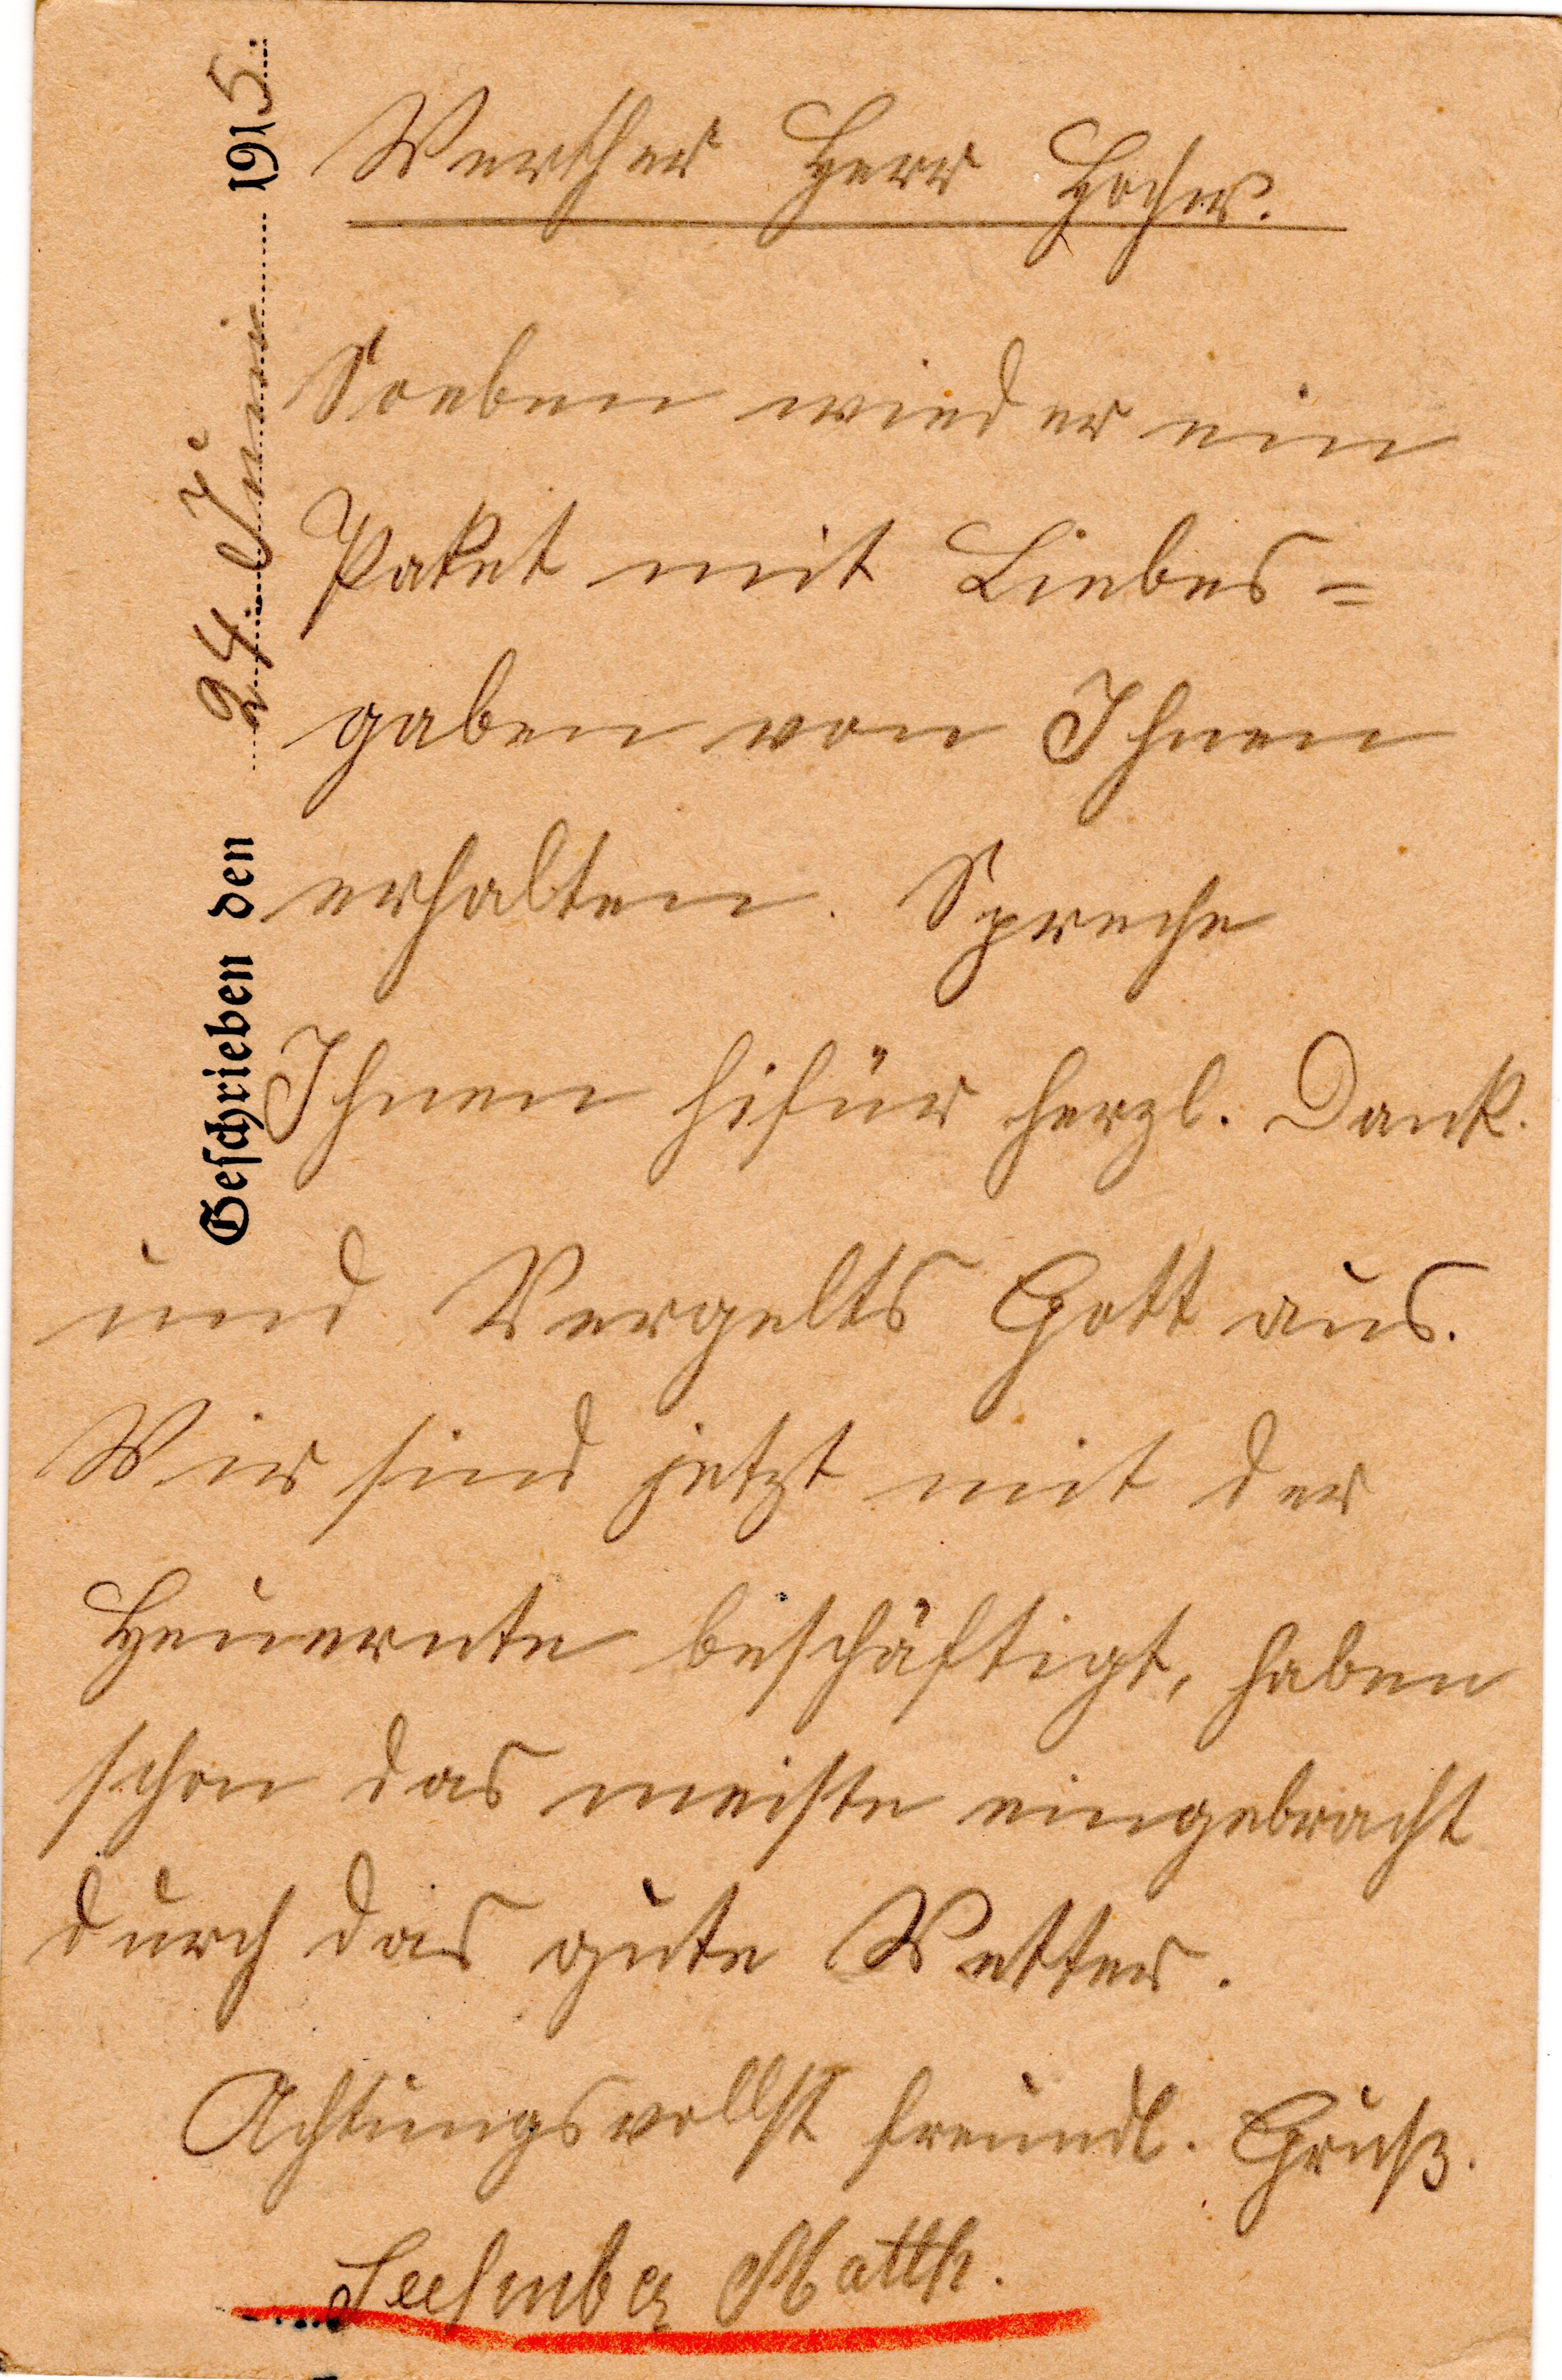 Geschrieben den 24 Juni 1915.
Werther Herr Hochw.
Soeben wieder ein
Paket mit Liebes=
gaben von Ihnen
erhalten. Spreche
Ihnen hifür herzl. Dank.
und Vergelts Gott aus.
Wir sind jetzt mit der
Heuernte beschäftigt, haben
schon das meiste eingebracht
durch das gute Wetter.
Achtungsvollst freundl. Gruß.
Matth.